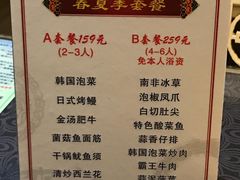 春夏季套餐
A套餐159元
(2-3人)
韩国泡菜
日式烤鳗
金汤肥牛
菌菇鱼面筋
干锅鱿鱼须
清炒西兰花
B套餐259元
(4-6人)
免本人浴资
南非冰草
泡椒凤爪
白切肚尖
特色酸菜鱼
蒜香仔排
韩国泡菜炒肉
霸王牛肉